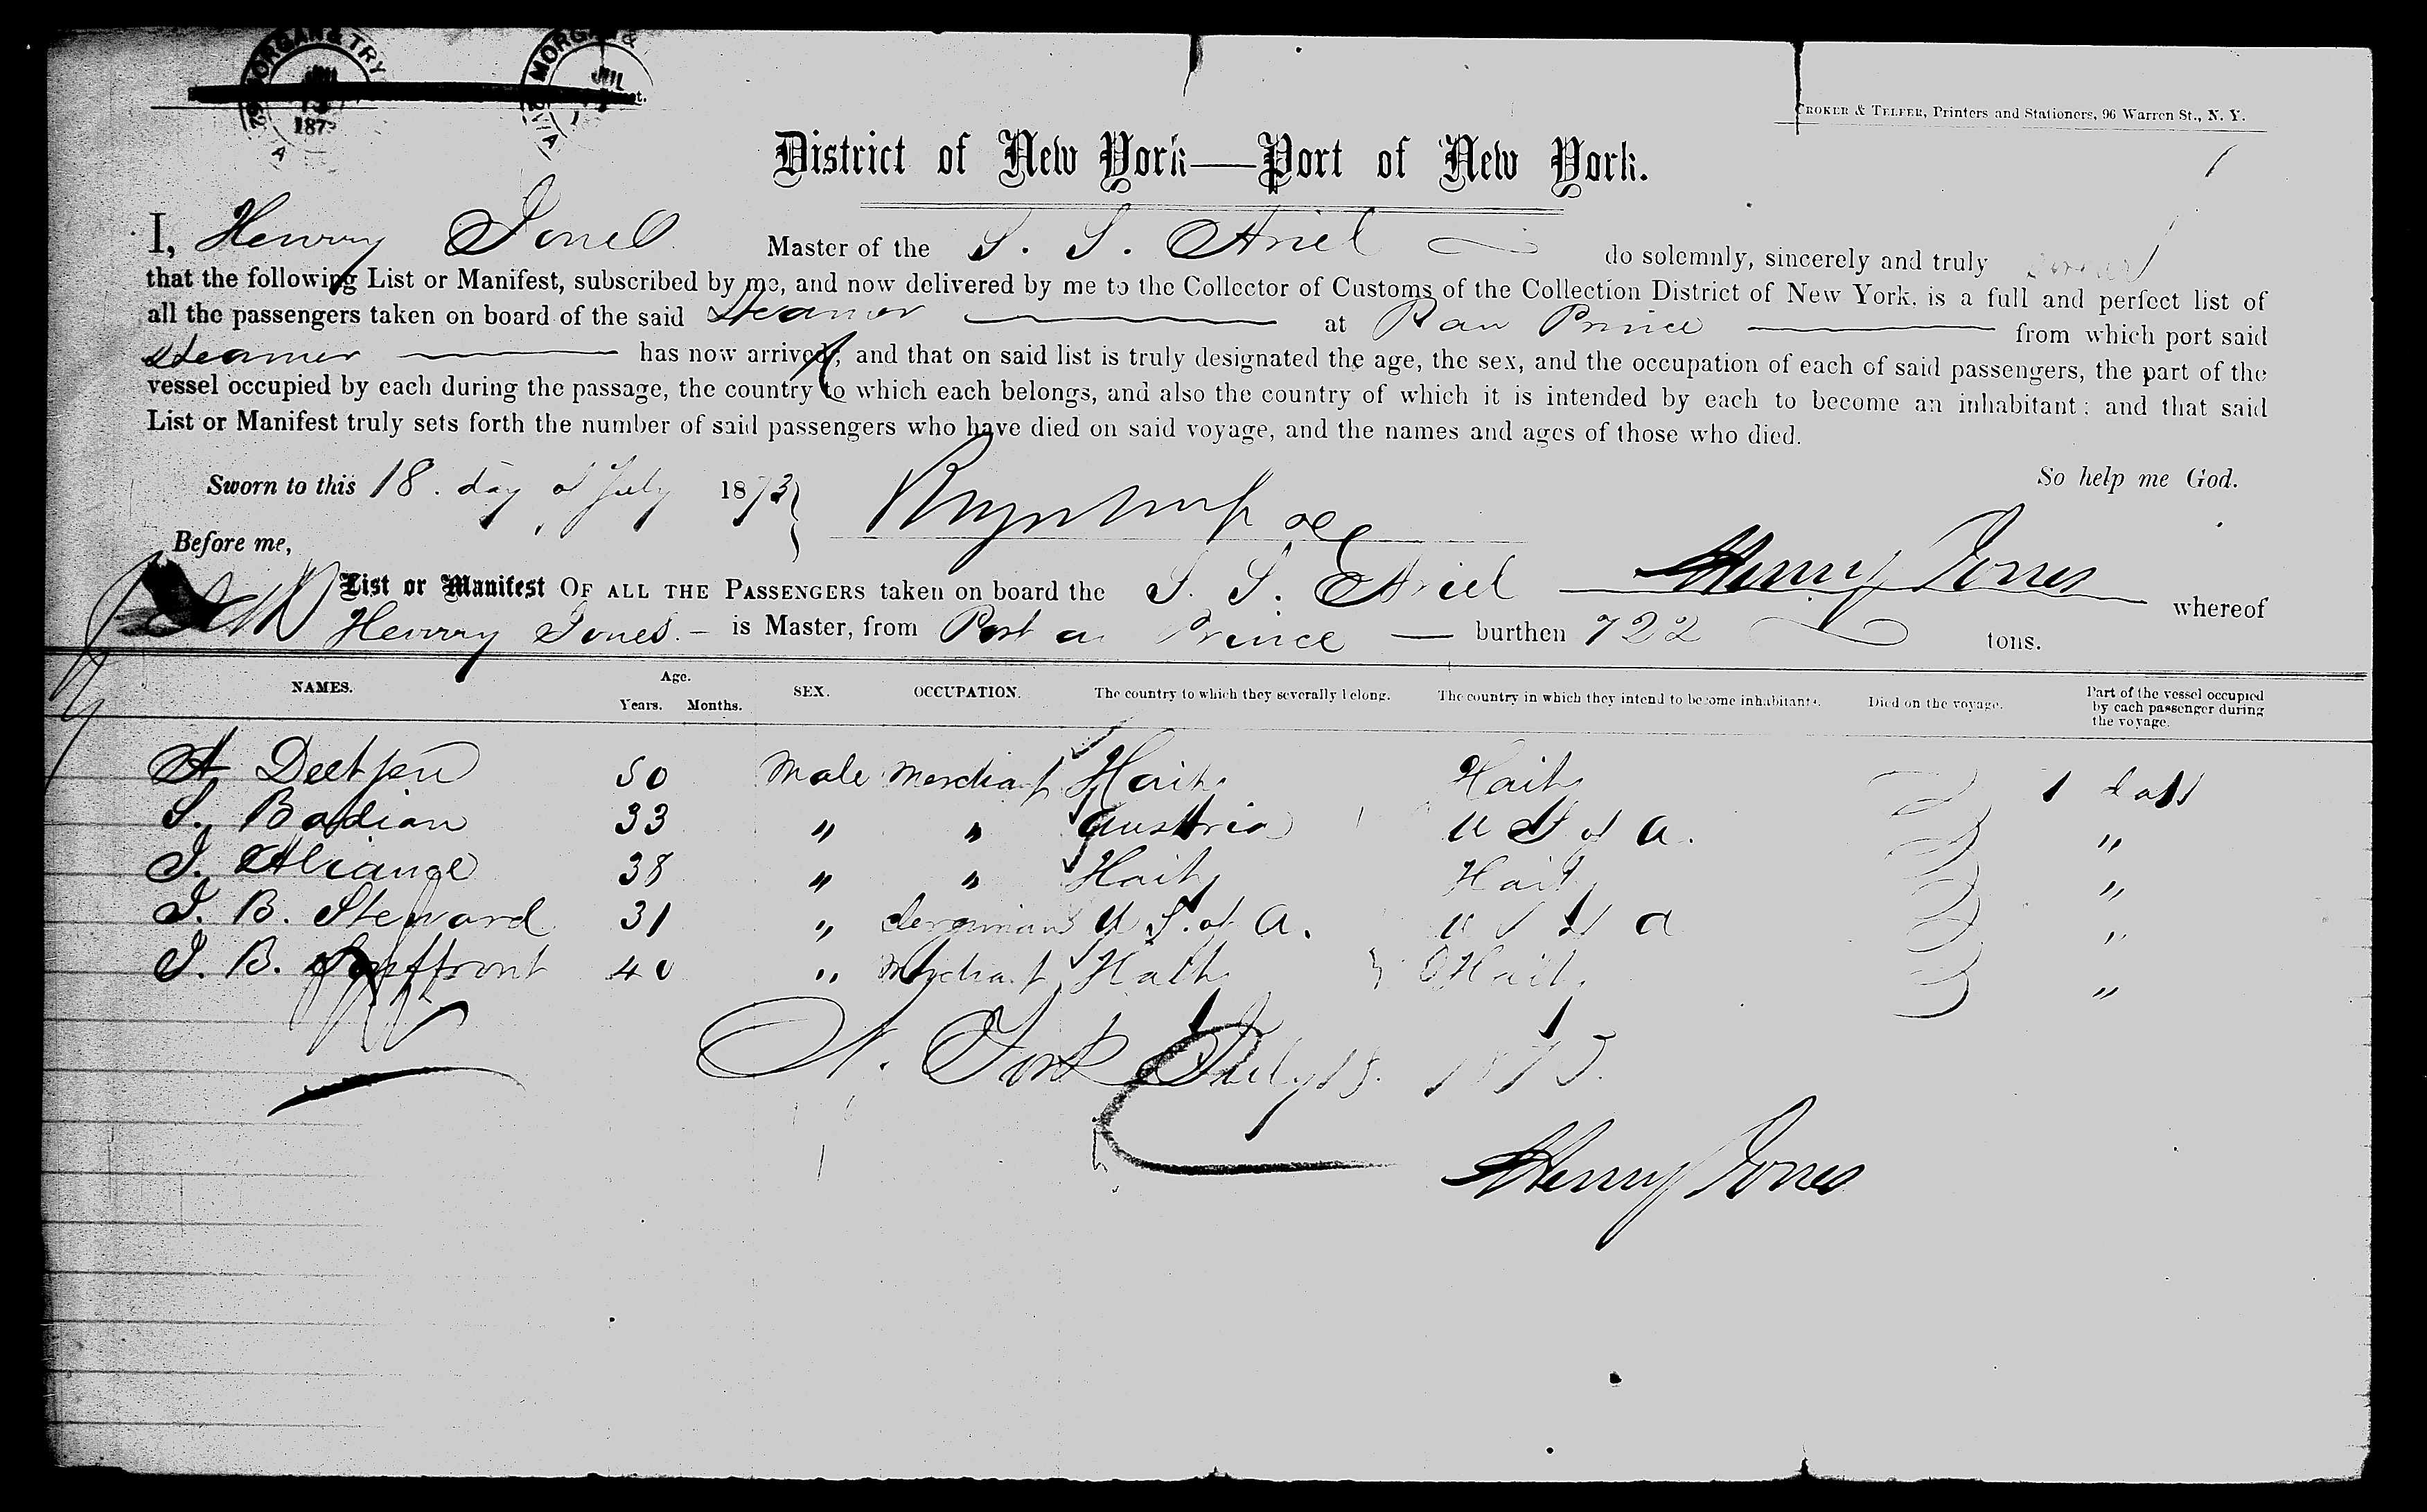 MORGAN & TRY
JUL
1873
MORGAN &
JUL
CROKER & TELFER, Printers and Stationers, 96 Warren St., N. Y.
District of New York—Port of New York.
I, Henry Jones Master of the S. S. Ariel do solemnly, sincerely and truly swear
that the following List or Manifest, subscribed by me, and now delivered by me to the Collector of Customs of the Collection District of New York, is a full and perfect list of
all the passengers taken on board of the said Steamer at Pau Prince from which port said
steamer has now arrived; and that on said list is truly designated the age, the sex, and the occupation of each of said passengers, the part of the
vessel occupied by each during the passage, the country to which each belongs, and also the country of which it is intended by each to become an inhabitant; and that said
List or Manifest truly sets forth the number of said passengers who have died on said voyage, and the names and ages of those who died.
Sworn to this 18. day of July 1873 So help me God.
Before me,
Henry Jones
List or Manifest OF ALL THE PASSENGERS taken on board the S. S. Ariel whereof
Henry Jones. — is Master, from Port au Prince — burthen 722 tons.
NAMES. Age. Years. Months. SEX. OCCUPATION. The country to which they severally belong. The country in which they intend to become inhabitants. Died on the voyage. Part of the vessel occupied by each passenger during the voyage.
A Deetjen 50 Male Merchant Haiti Haiti 1 Class
S. Badian 33 " " Austria U S of A. "
J. Aliange 38 " " Haiti Haiti "
J. B. Steward 31 " clergiman U S. of A. U S of A "
J. B. 40 " Merchant Haiti Haiti "
N. York July 18. 1873.
Henry Jones